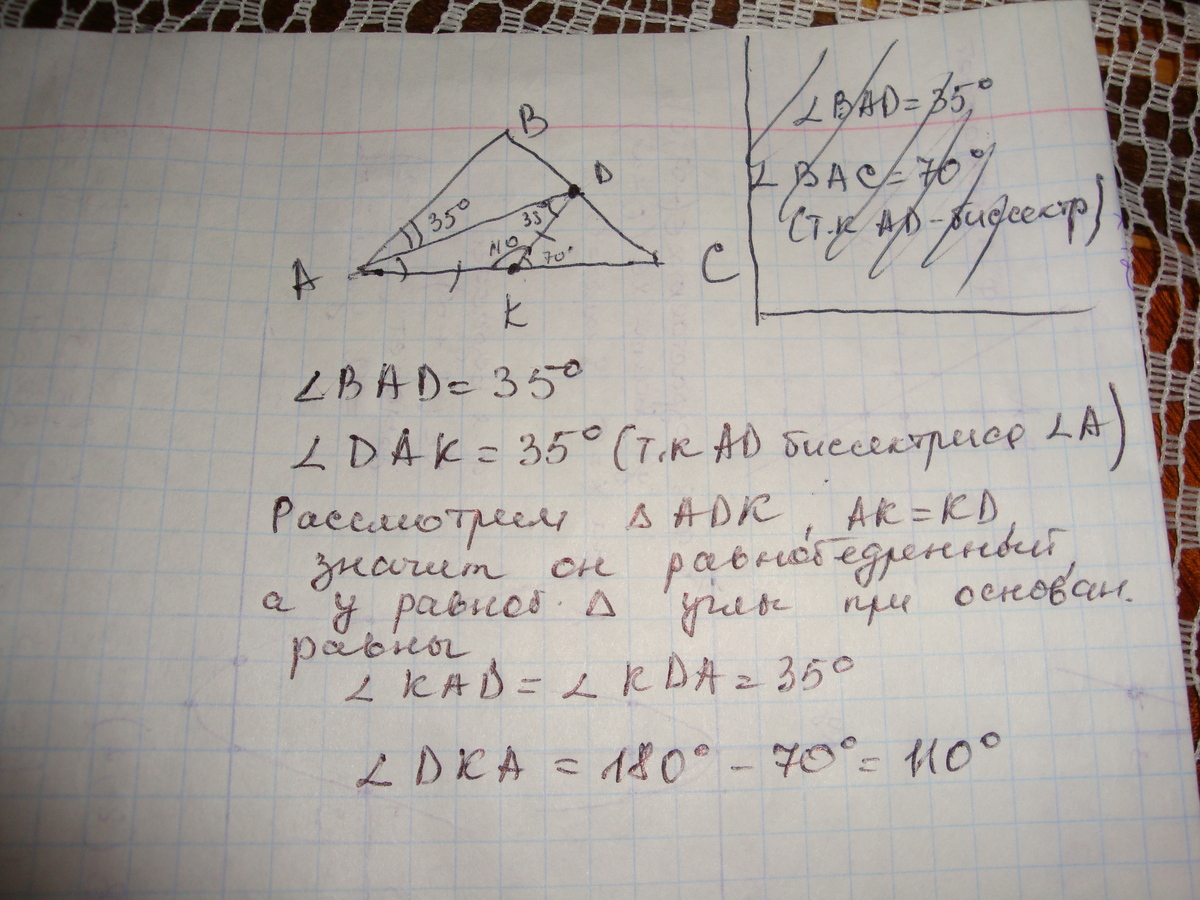 B
D
35°
35°
110
70°
A
C
K
∠BAD = 35°
∠BAC = 70°
(т.к AD - биссектр)
∠BAD = 35°
∠DAK = 35° (т.к AD биссектриса ∠A)
Рассмотрим △ ADK, AK = KD,
значит он равнобедренный,
а у равноб. △ углы при основан.
равны
∠KAD = ∠KDA = 35°
∠DKA = 180° - 70° = 110°